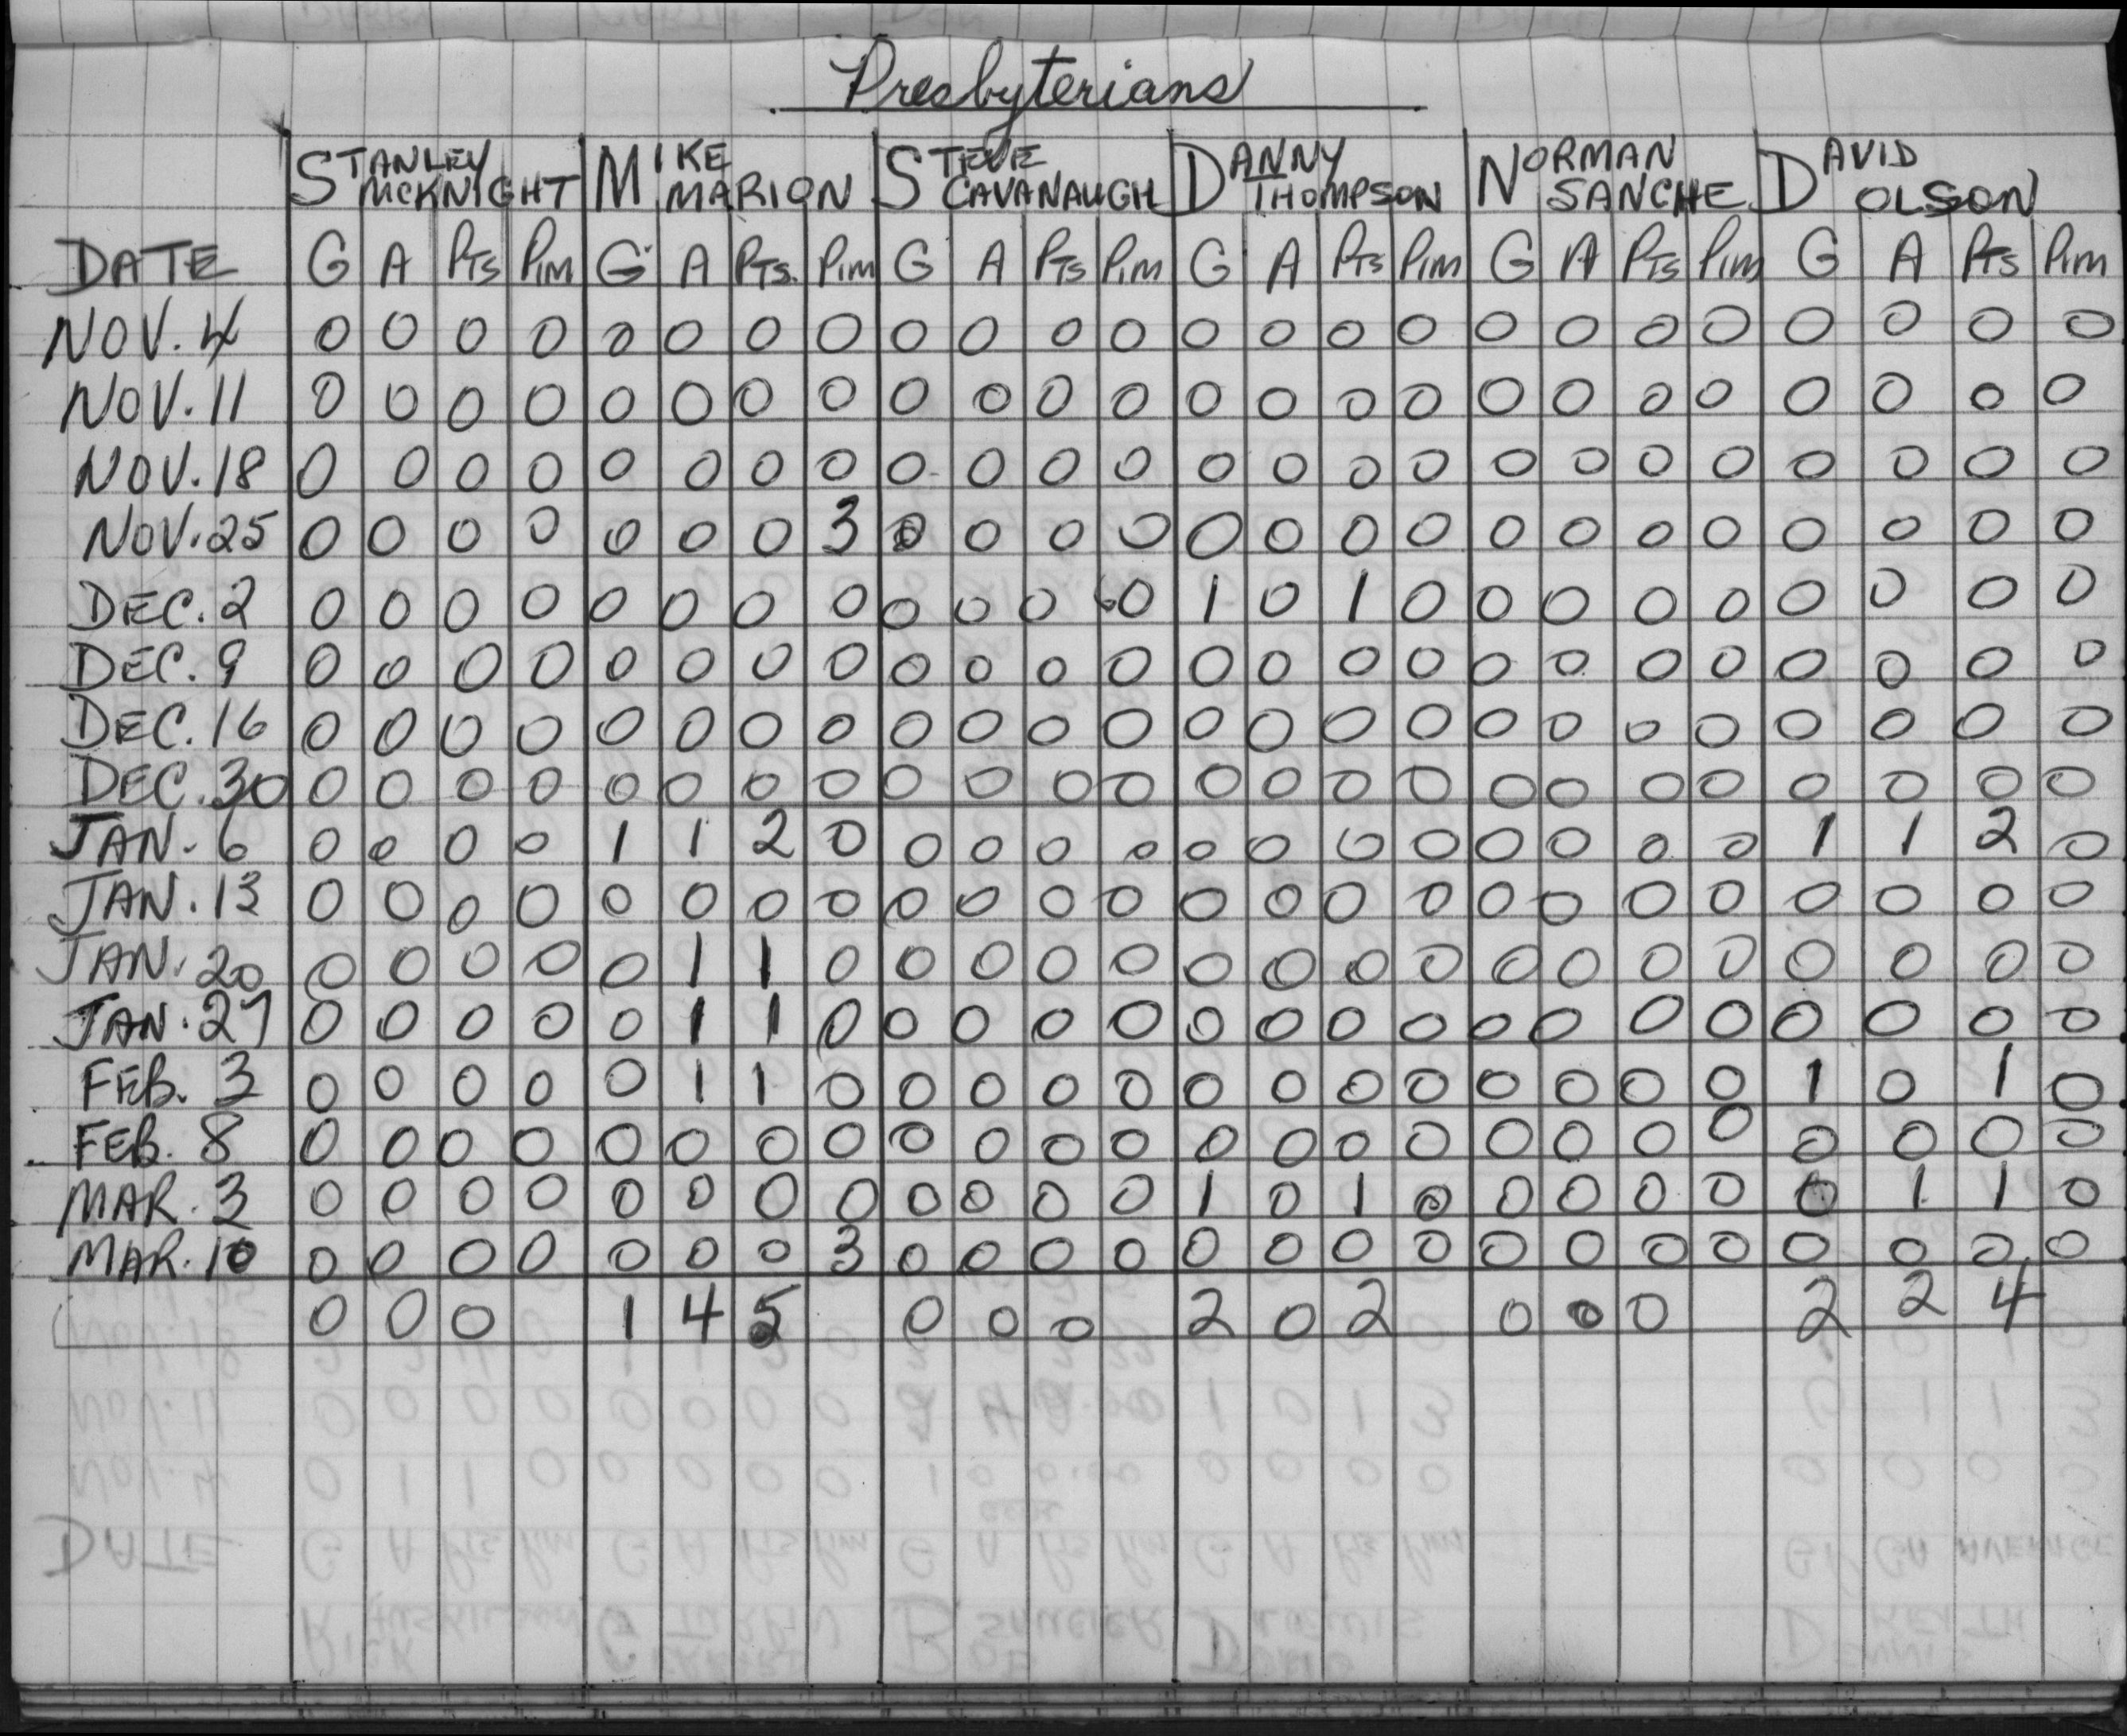 Presbyterians
STANLEY McKNIGHT MIKE MARION STEVE CAVANAUGH DANNY THOMPSON NORMAN SANCHE DAVID OLSON
DATE G A PTS PIM G A PTS. PIM G A PTS PIM G A PTS PIM G A PTS PIM G A PTS PIM
NOV. 4 0 0 0 0 0 0 0 0 0 0 0 0 0 0 0 0 0 0 0 0 0 0 0 0
NOV. 11 0 0 0 0 0 0 0 0 0 0 0 0 0 0 0 0 0 0 0 0 0 0 0 0
NOV. 18 0 0 0 0 0 0 0 0 0 0 0 0 0 0 0 0 0 0 0 0 0 0 0 0
NOV. 25 0 0 0 0 0 0 0 3 0 0 0 0 0 0 0 0 0 0 0 0 0 0 0 0
DEC. 2 0 0 0 0 0 0 0 0 0 0 0 0 1 0 1 0 0 0 0 0 0 0 0 0
DEC. 9 0 0 0 0 0 0 0 0 0 0 0 0 0 0 0 0 0 0 0 0 0 0 0 0
DEC. 16 0 0 0 0 0 0 0 0 0 0 0 0 0 0 0 0 0 0 0 0 0 0 0 0
DEC. 30 0 0 0 0 0 0 0 0 0 0 0 0 0 0 0 0 0 0 0 0 0 0 0 0
JAN. 6 0 0 0 0 1 1 2 0 0 0 0 0 0 0 0 0 0 0 0 0 1 1 2 0
JAN. 13 0 0 0 0 0 0 0 0 0 0 0 0 0 0 0 0 0 0 0 0 0 0 0 0
JAN. 20 0 0 0 0 0 1 1 0 0 0 0 0 0 0 0 0 0 0 0 0 0 0 0 0
JAN. 27 0 0 0 0 0 1 1 0 0 0 0 0 0 0 0 0 0 0 0 0 0 0 0 0
FEB. 3 0 0 0 0 0 1 1 0 0 0 0 0 0 0 0 0 0 0 0 0 1 0 1 0
FEB. 8 0 0 0 0 0 0 0 0 0 0 0 0 0 0 0 0 0 0 0 0 0 0 0 0
MAR. 3 0 0 0 0 0 0 0 0 0 0 0 0 1 0 1 0 0 0 0 0 0 1 1 0
MAR. 10 0 0 0 0 0 0 0 3 0 0 0 0 0 0 0 0 0 0 0 0 0 0 0 0
0 0 0 1 4 5 0 0 0 2 0 2 0 0 0 2 2 4